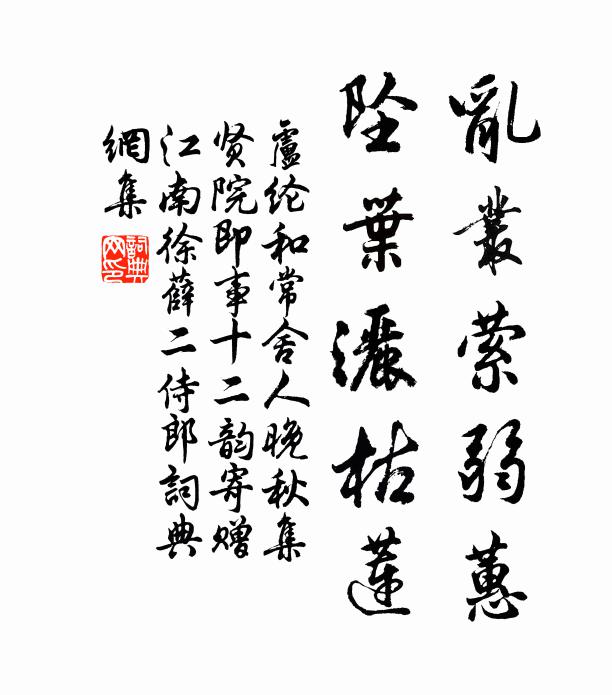 亂叢縈弱蕙
墜葉灑枯蓮
盧纶和常舍人晚秋集
贤院即事十二韵寄赠
江南徐薛二侍郎詞典
網集
詞典
网印